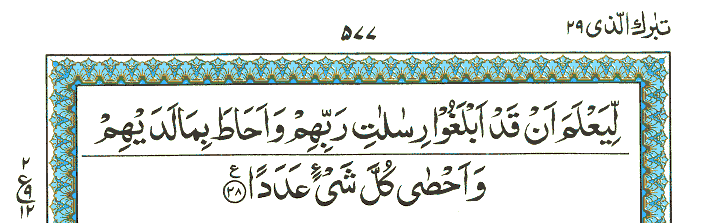 تبٰرك الّذى ٢٩
٥٧٧
لِّيَعْلَمَ اَنْ قَدْ اَبْلَغُوْا رِسٰلٰتِ رَبِّهِمْ وَاَحَاطَ بِمَا لَدَيْهِمْ
وَاَحْصٰى كُلَّ شَىْءٍ عَدَدًا ۧ ﴿٢٨﴾
٢
ع
٩
١٢